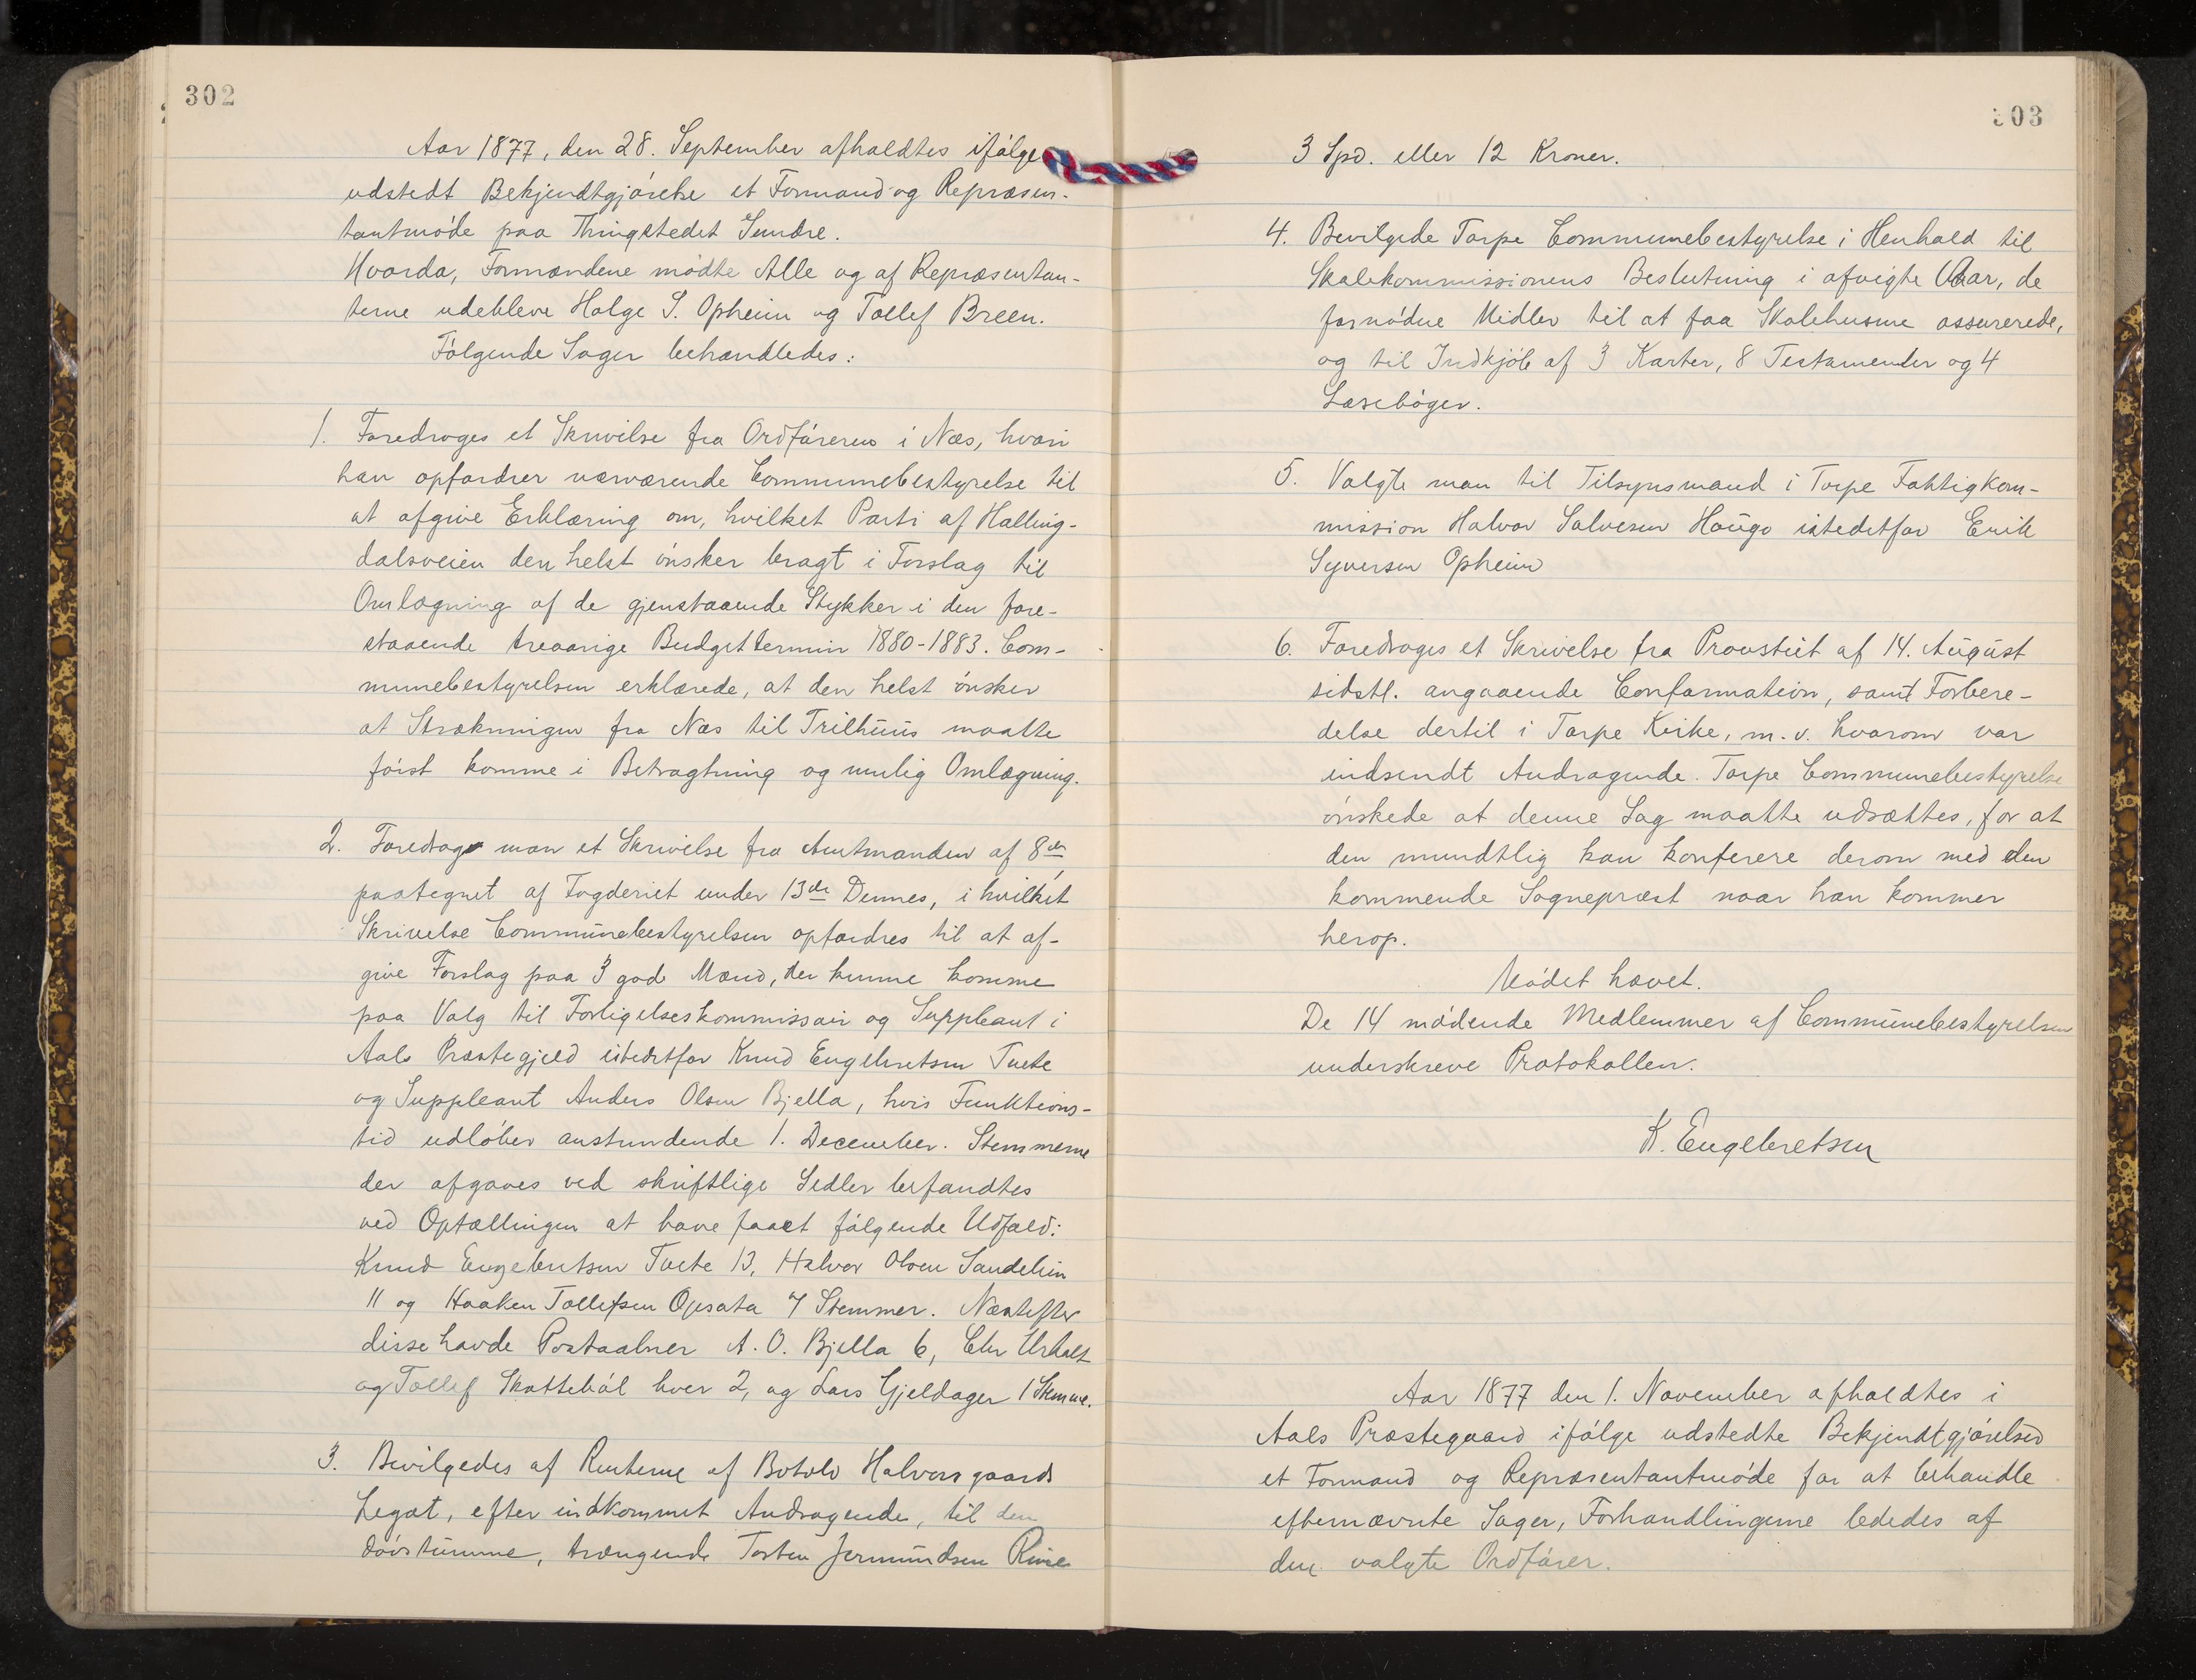 302
Aar 1877, den 28. September afholdtes ifølge
udstedt Bekjendtgjørelse et Formand og Repræsen-
tantmøde paa Thingstedet Sundre.
Hvorda, Formændene mødte Alle og af Repræsentan-
terne udebleve Holge S. Opheim og Tollef Breen.
Følgende Sager behandledes:
1. Foredroges et Skrivelse fra Ordføreren i Næs, hvori
han opfordrer nærværende Communebestyrelse til
at afgive Erklæring om, hvilket Parti af Halling-
dalsveien den helst ønsker bragt i Forslag til
Omlægning af de gjenstaaende Stykker i den fore-
staaende treaarige Budgettermin 1880-1883. Com-
munebestyrelsen erklærede, at den helst ønsker
at Strækningen fra Næs til Trilhuus maatte
først komme i Betragtning og mulig Omlægning.
2. Foredrog man et Skrivelse fra Amtmanden af 8de,
paategnet af Fogderiet under 13de Dennes, i hvilket
Skrivelse Communebestyrelsen opfordres til at af-
give Forslag paa 3 god Mænd, der kunne komme
paa Valg til Forligelseskommissair og Suppleant i
Aals Præstegjeld istedetfor Knud Engebretsen Tuete
og Suppleant Anders Olsen Bjella, hvis Funktions-
tid udløber anstundende 1. December. Stemmerne
der afgaves ved skriftlige Sedler befandtes
ved Optællingen at have faaet følgende Udfald:
Knud Engebretsen Tuete 13, Halvor Olsen Sandehin
11 og Haaken Tollefsen Opsata 7 Stemmer. Næstefter
disse havde Postaabner A. O. Bjella 6, Chr Urholt
og Tollef Skottebøl hver 2, og Lars Gjeldager 1 Stemme.
3. Bevilgedes af Renterne af Botolv Halvorsgaards
Legat, efter indkommet Andragende, til den
døvstumme, trængende Torsten Jermundsen Rime
303
3 Spd. eller 12 Kroner.
4. Bevilgede Torpe Communebestyrelse i Henhold til
Skolekommissionens Beslutning i afvigte Vaar, de
fornødne Midler til at faa Skolehusene assurerede,
og til Indkjøb af 3 Karter, 8 Testamenter og 4
Læsebøger.
5. Valgte man til Tilsynsmand i Torpe Fattigkom-
mission Halvor Salvesen Haugo istedetfor Erik
Syversen Opheim
6. Foredroges et Skrivelse fra Provstiet af 14. August
sidstl. angaaende Confarmation, samt Forbere-
delse dertil i Torpe Kirke, m. v. hvorom var
indsendt Andragende. Torpe Communebestyrelse
ønskede at denne Sag maatte udsættes, for at
den mundtlig kan konferere derom med den
kommende Sognepræst naar han kommer
herop.
Mødet hævet.
De 14 mødende Medlemmer af Communebestyrelsen
underskreve Protokollen.
K. Engebretsen
Aar 1877 den 1. November afholdtes i
Aals Præstegaard ifølge udstedte Bekjendtgjørelser
et Formand og Repræsentantmøde for at behandle
efternævnte Sager, Forhandlingerne lededes af
den valgte Ordfører.